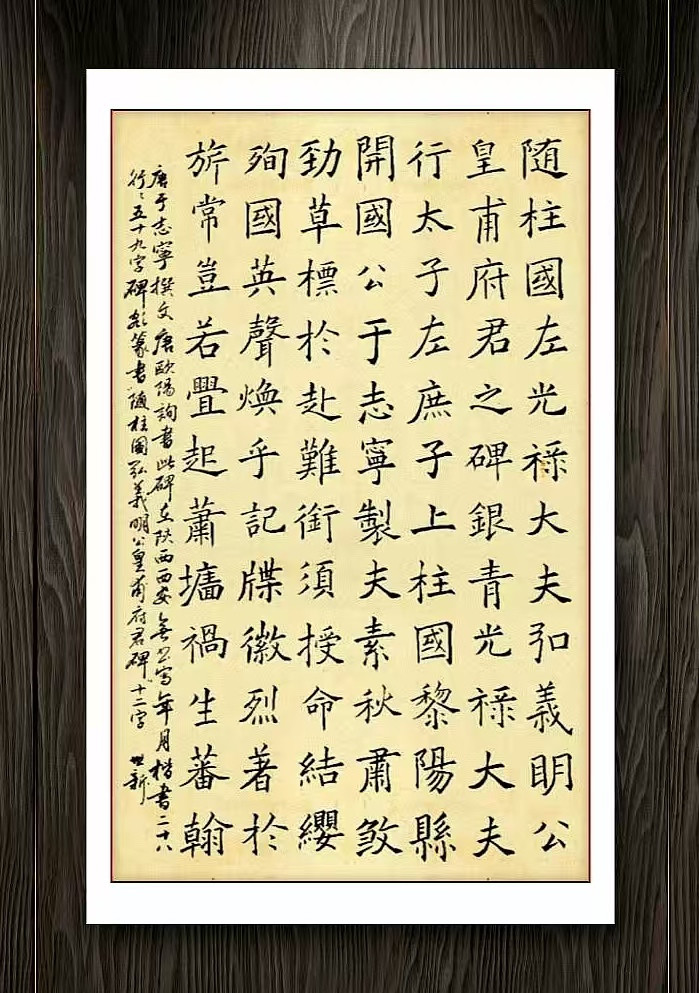 随柱國左光禄大夫弘義明公
皇甫府君之碑銀青光禄大夫
行太子左庶子上柱國黎陽縣
開國公于志寧製夫素秋肅煞
勁草標於赴難銜須授命結纓
殉國英聲煥乎記牒徽烈著於
旂常豈若舋起蕭墻禍生蕃翰
唐于志寧撰文唐歐陽詢書此碑在陕西西安無書寫年月楷書二十八
行行五十九字碑額篆書隨柱國弘義明公皇甫府君碑十二字
世新